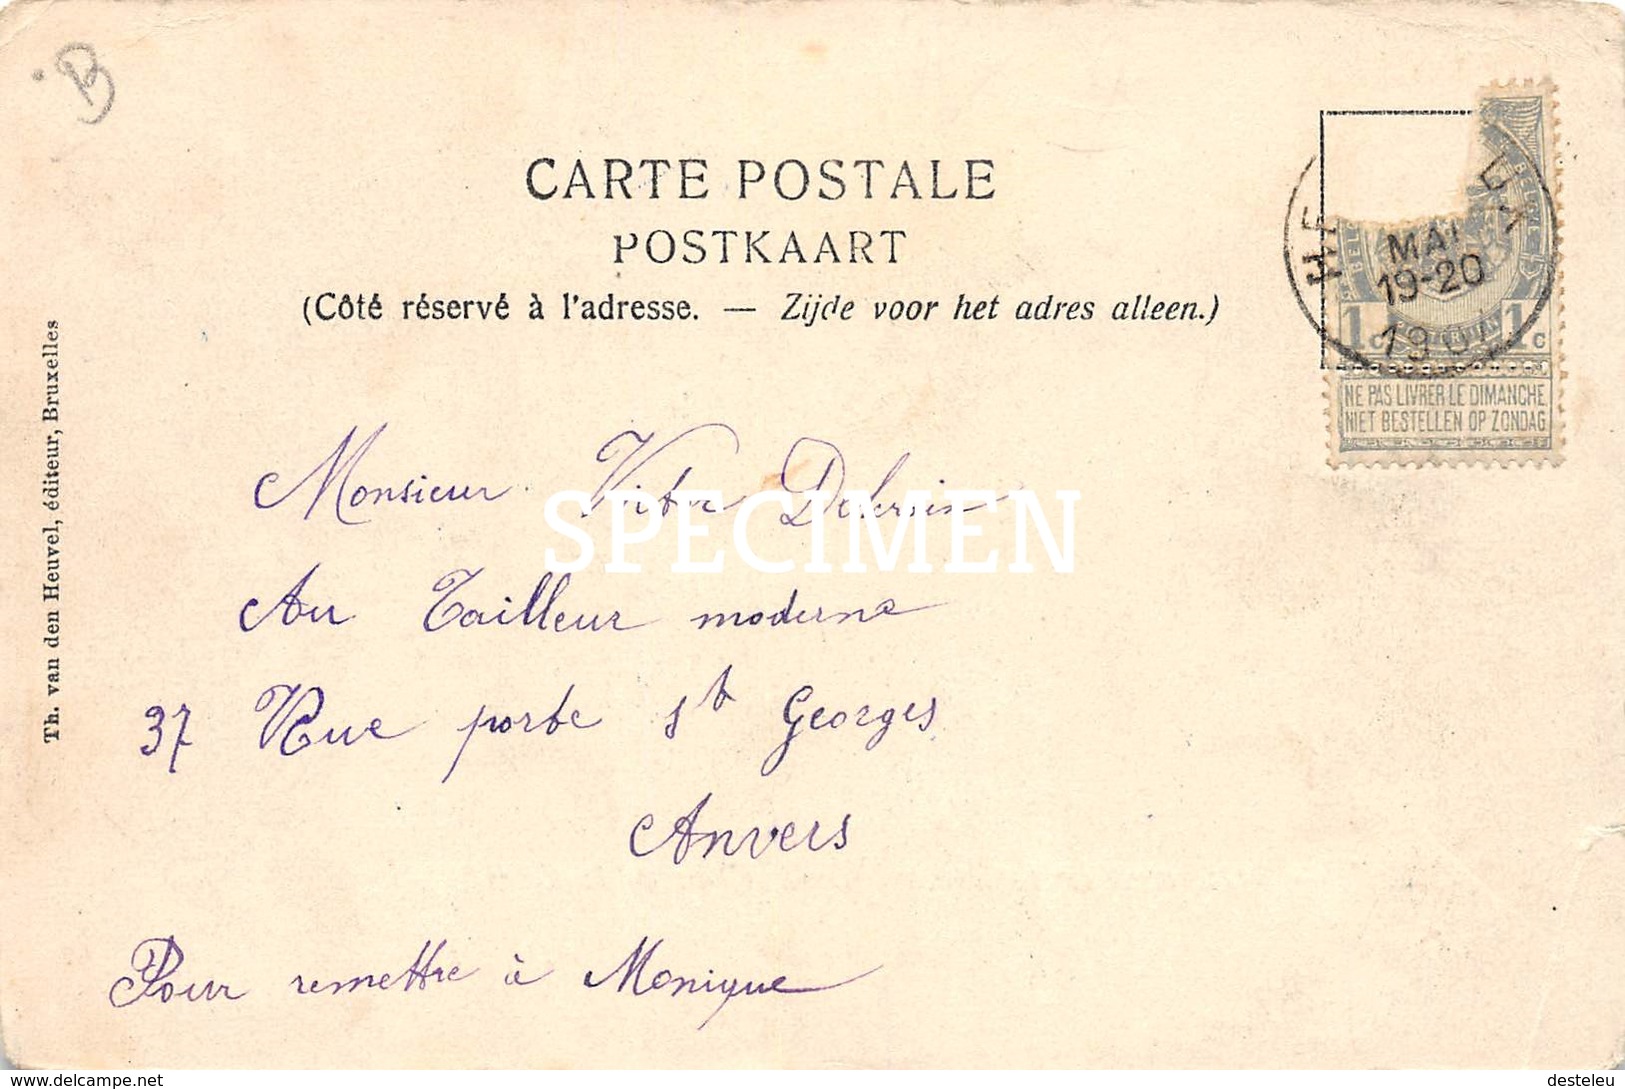 B
CARTE POSTALE
POSTKAART
(Côté réservé à l'adresse. — Zijde voor het adres alleen.)
MAI
19-20
1c 1c
NE PAS LIVRER LE DIMANCHE
NIET BESTELLEN OP ZONDAG
Th. van den Heuvel, éditeur, Bruxelles
Monsieur Victor
SPECIMEN
Au Tailleur moderne
37 Rue porte St Georges
Anvers
Pour remettre à Monique
www.delcampe.net
desteleu